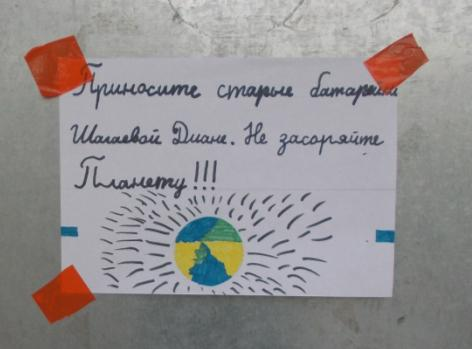 Приносите старые батарейки
Шагаевой Диане. Не засоряйте
Планету!!!